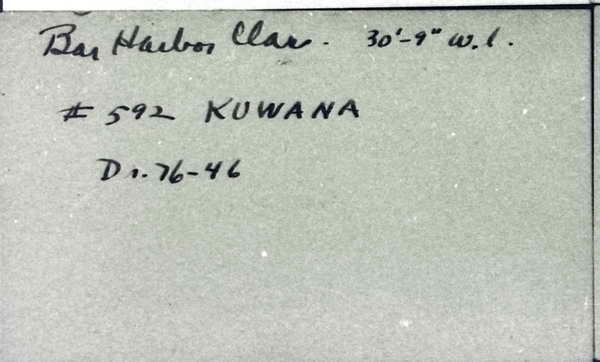 Bar Harbor Class. 30'-9" w.l.
# 592 KUWANA
Dr. 76-46